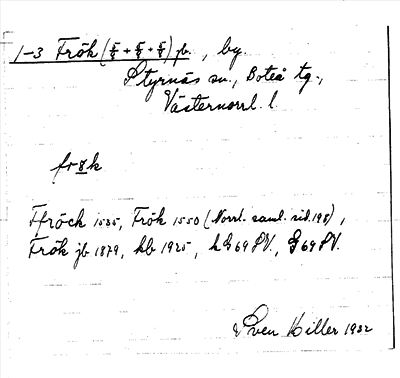 1-3 Frök (5/5 + 6/6 + 8/8) jb., by.
Styrnäs sn., Boteå tg.,
Västernorrl. l.
frøk
Ffröck 1535, Frök 1550 (Norrl. saml. sid. 198),
Frök jb 1879, kb 1925, h G 69 SV, G 69 SV.
Sven Hiller 1932